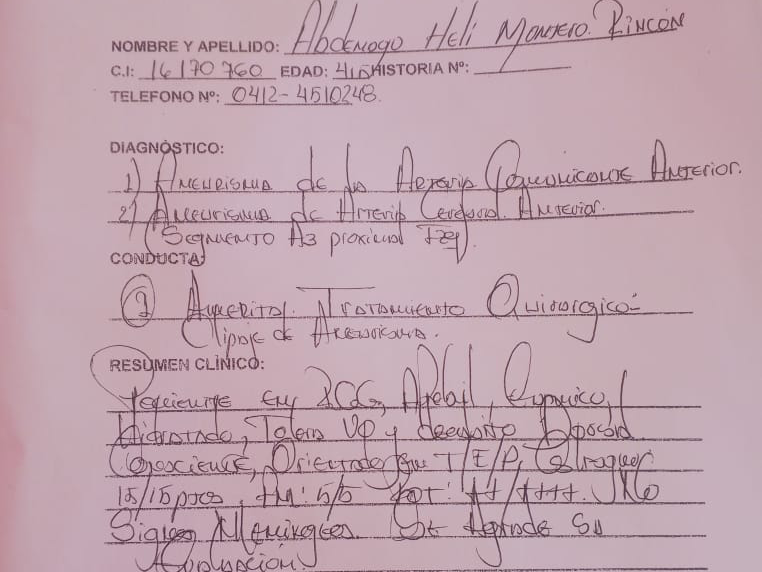 NOMBRE Y APELLIDO: Abdenago Heli Montero. Rincón
C.I: 16170760 EDAD: 41 HISTORIA Nº:
TELEFONO Nº: 0412-4510248.
DIAGNÓSTICO:
1) Aneurisma de la Arteria Comunicante Anterior.
2) Aneurisma de Arteria Cerebral. Anterior.
(Segmento A3 proximal Izq).
CONDUCTA:
Amerita. Tratamiento Quirúrgico-
Clipaje de Aneurisma.
RESUMEN CLÍNICO:
Paciente en RCG, Afebril, Eupneico,
Hidratado, Tolera VO y decubito Dorsal
Consciente, Orientado en T/E/P, Glasgow
15/15 ptos. FM: 5/5 ROT: ++/++++. No
Signos Meningeos. Se Agradece Su
Evaluación.